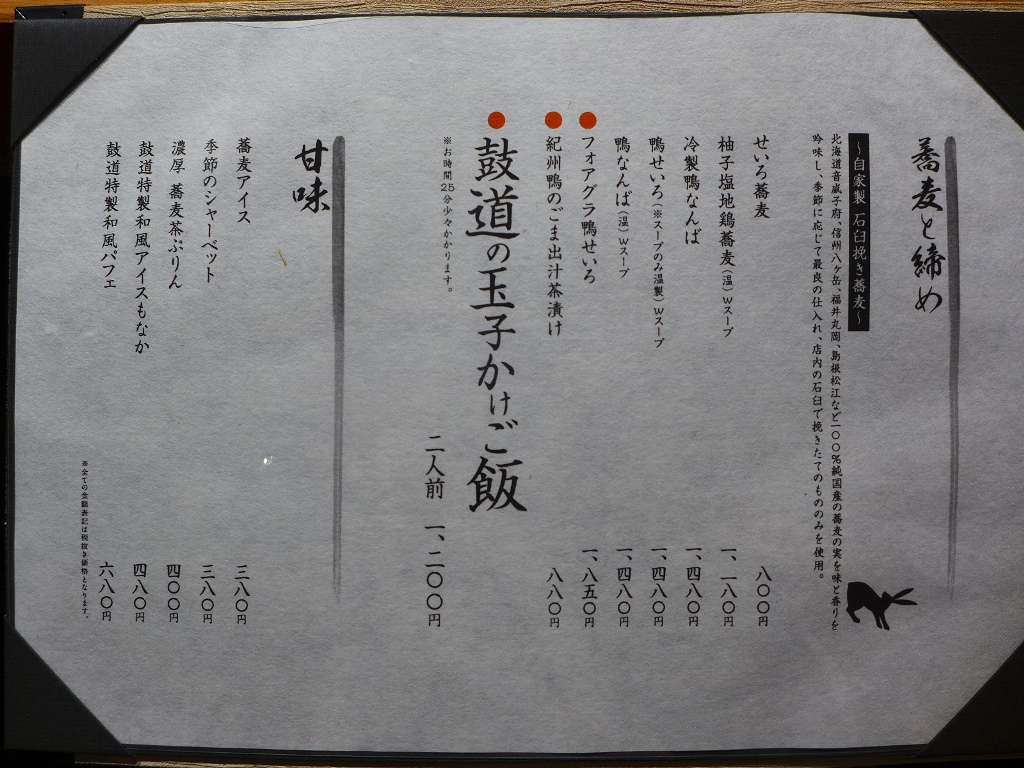 蕎麦と締め
～自家製 石臼挽き蕎麦～
北海道音威子府、信州八ヶ岳、福井丸岡、島根松江など一〇〇%純国産の蕎麦の実を味と香りを
吟味し、季節に応じて最良の仕入れ、店内の石臼で挽きたてのもののみを使用。
せいろ蕎麦 八〇〇円
柚子塩地鶏蕎麦（温）Wスープ 一、一八〇円
冷製鴨なんば 一、四八〇円
鴨せいろ（※スープのみ温製）Wスープ 一、四八〇円
鴨なんば（温）Wスープ 一、四八〇円
フォアグラ鴨せいろ 一、八五〇円
紀州鴨のごま出汁茶漬け 八八〇円
鼓道の玉子かけご飯
※お時間25分少々かかります。
二人前 一、二〇〇円
甘味
蕎麦アイス 三八〇円
季節のシャーベット 三八〇円
濃厚 蕎麦茶ぷりん 四〇〇円
鼓道特製和風アイスもなか 四八〇円
鼓道特製和風パフェ 六八〇円
※全ての金額表記は税抜き価格となります。